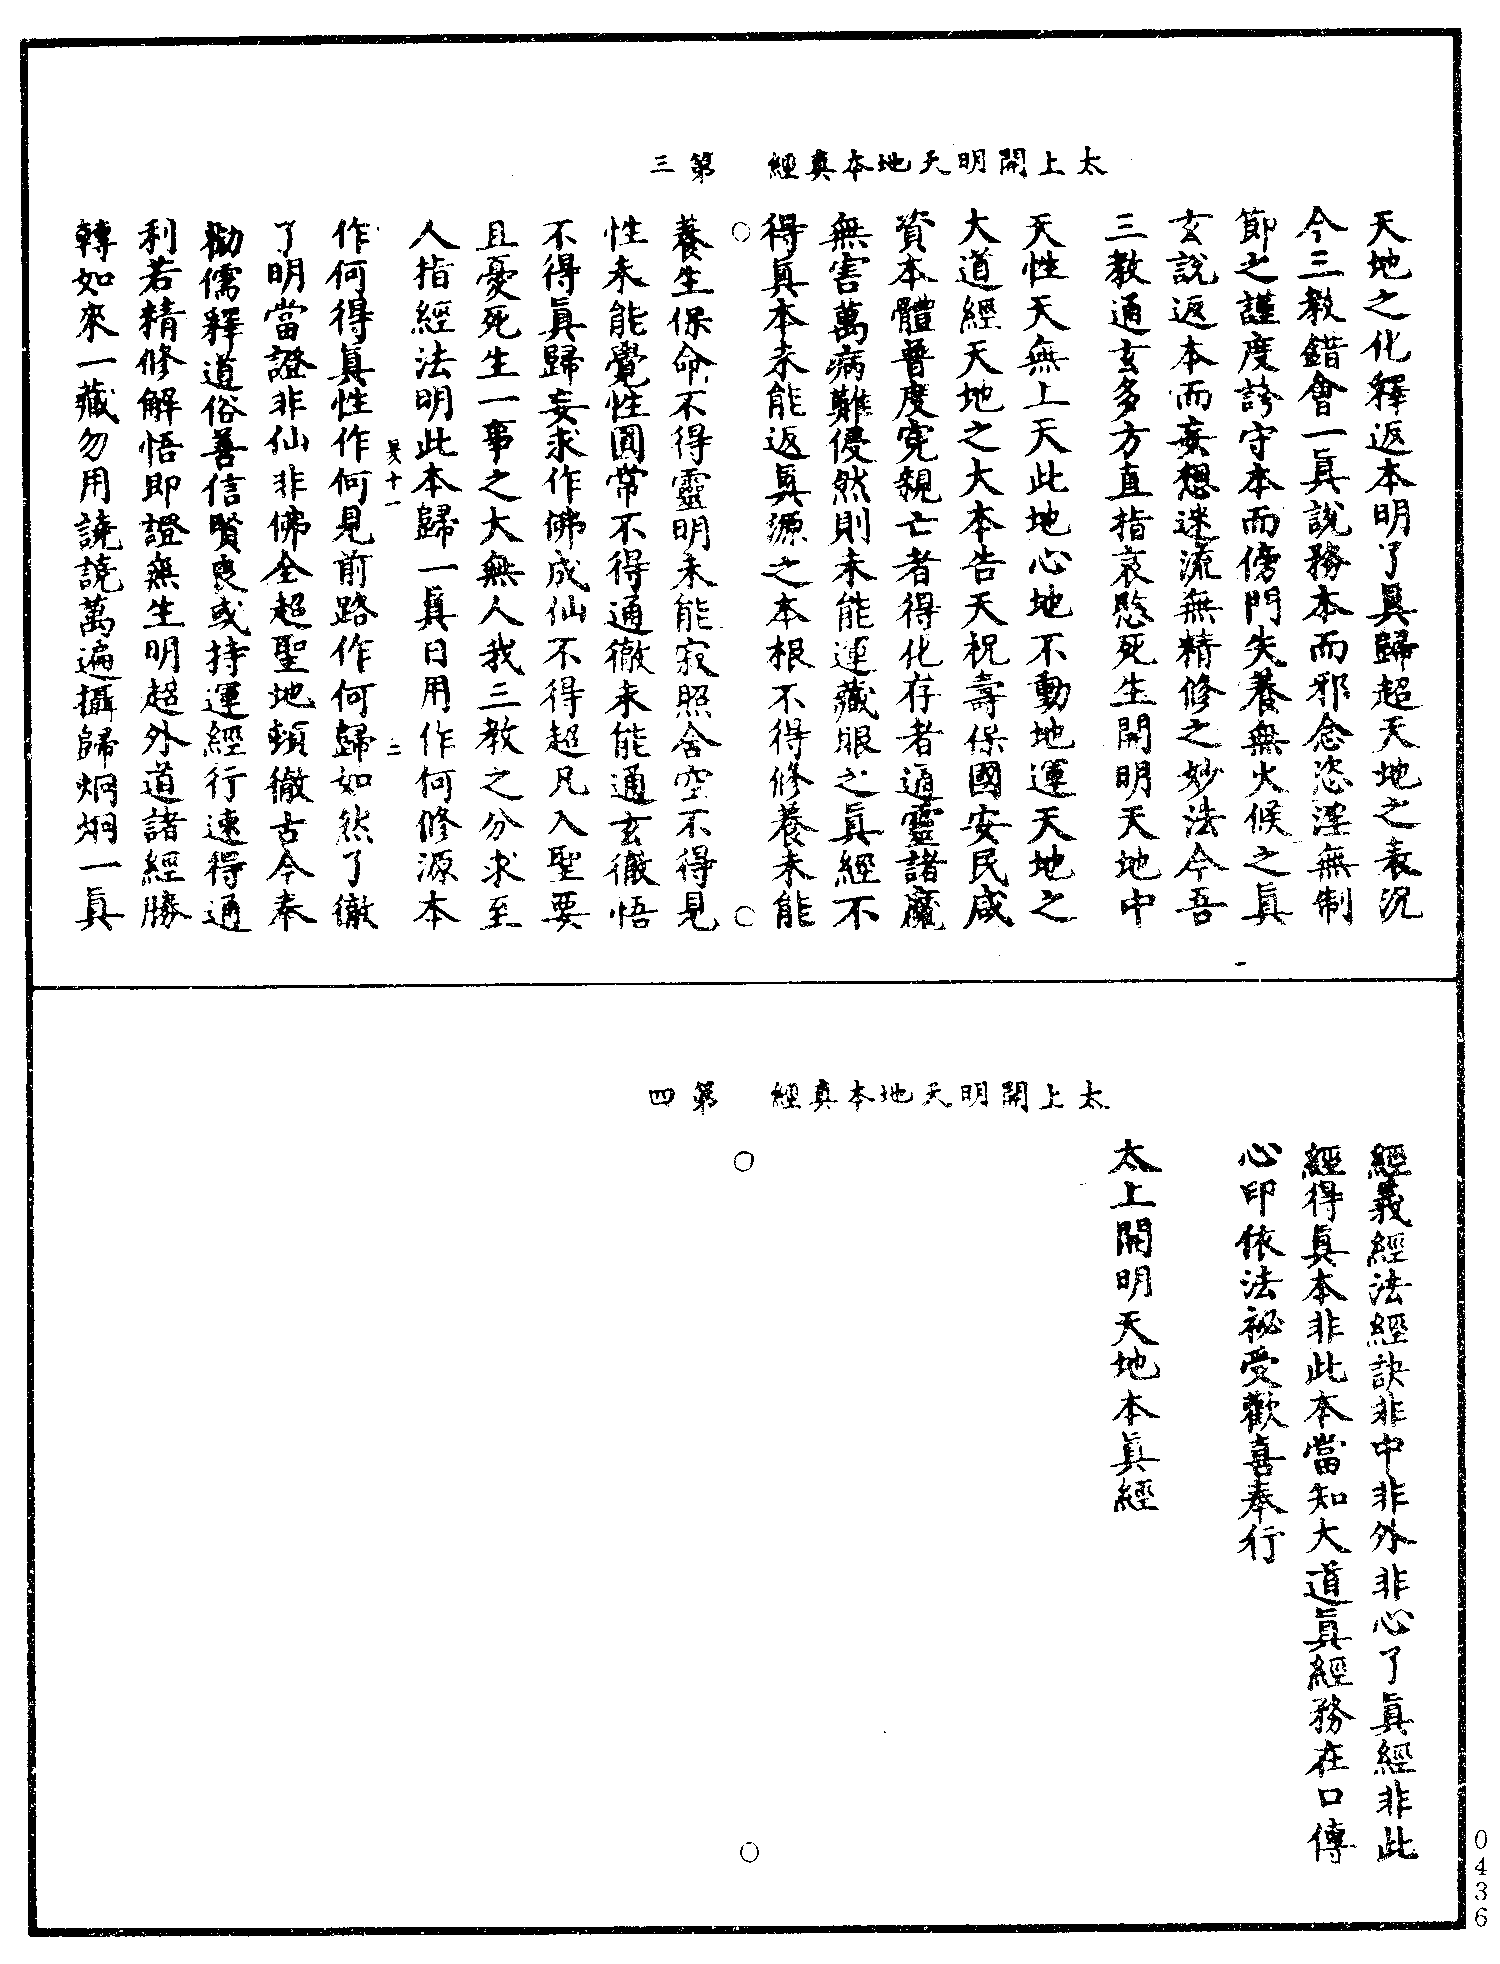 太上開明天地本真經　第三
天地之化釋返本明了真歸超天地之表況
今三教錯會一真說務本而邪念恣淫無制
節之謹度誇守本而傍門失養無火候之真
玄說返本而妄想迷流無精修之妙法今吾
三教通玄多方直指哀愍死生開明天地中
天性天無上天此地心地不動地運天地之
大道經天地之大本告天祝壽保國安民咸
資本體普度寃親亡者得化存者通靈諸魔
無害萬病難侵然則未能運藏眼之真經不
得真本未能返真源之本根不得修養未能
養生保命不得靈明未能寂照舍空不得見
性未能覺性圓常不得通徹未能通玄徹悟
不得真歸妄求作佛成仙不得超凡入聖要
且憂死生一事之大無人我三教之分求至
人指經法明此本歸一真日用作何修源本
十一　二
作何得真性作何見前路作何歸如然了徹
了明當證非仙非佛全超聖地頓徹古今奉
勸儒釋道俗善信賢良或持運經行速得通
利若精修解悟即證無生明超外道諸經勝
轉如來一藏勿用譊譊萬遍攝歸炯炯一真
太上開明天地本真經　第四
經義經法經訣非中非外非心了真經非此
經得真本非此本當知大道真經務在口傳
心印依法祕受歡喜奉行
太上開明天地本真經
0436